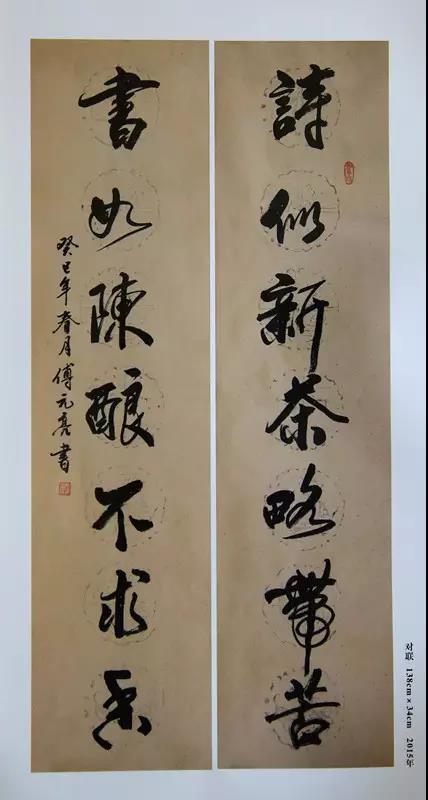 詩似新茶略帶苦
書如陳酿不求香
癸巳年春月傅元亮書
对联 138cm×34cm 2015年